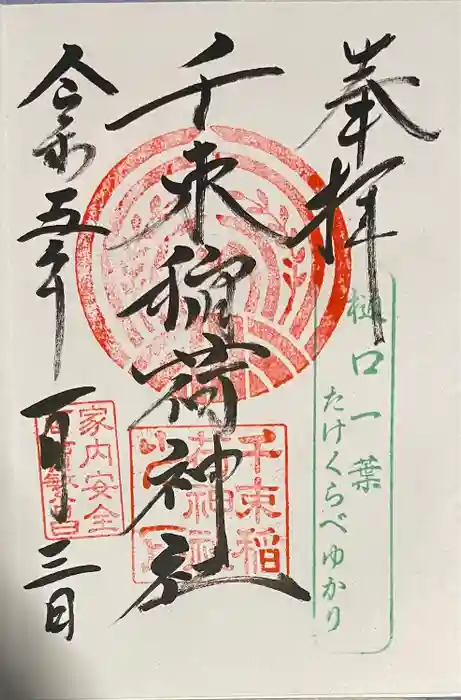 奉拝
樋口一葉
たけくらべゆかり
千束稲荷神社
千束稲
荷神社
令和五年一月三日
家内安全
商売繁昌